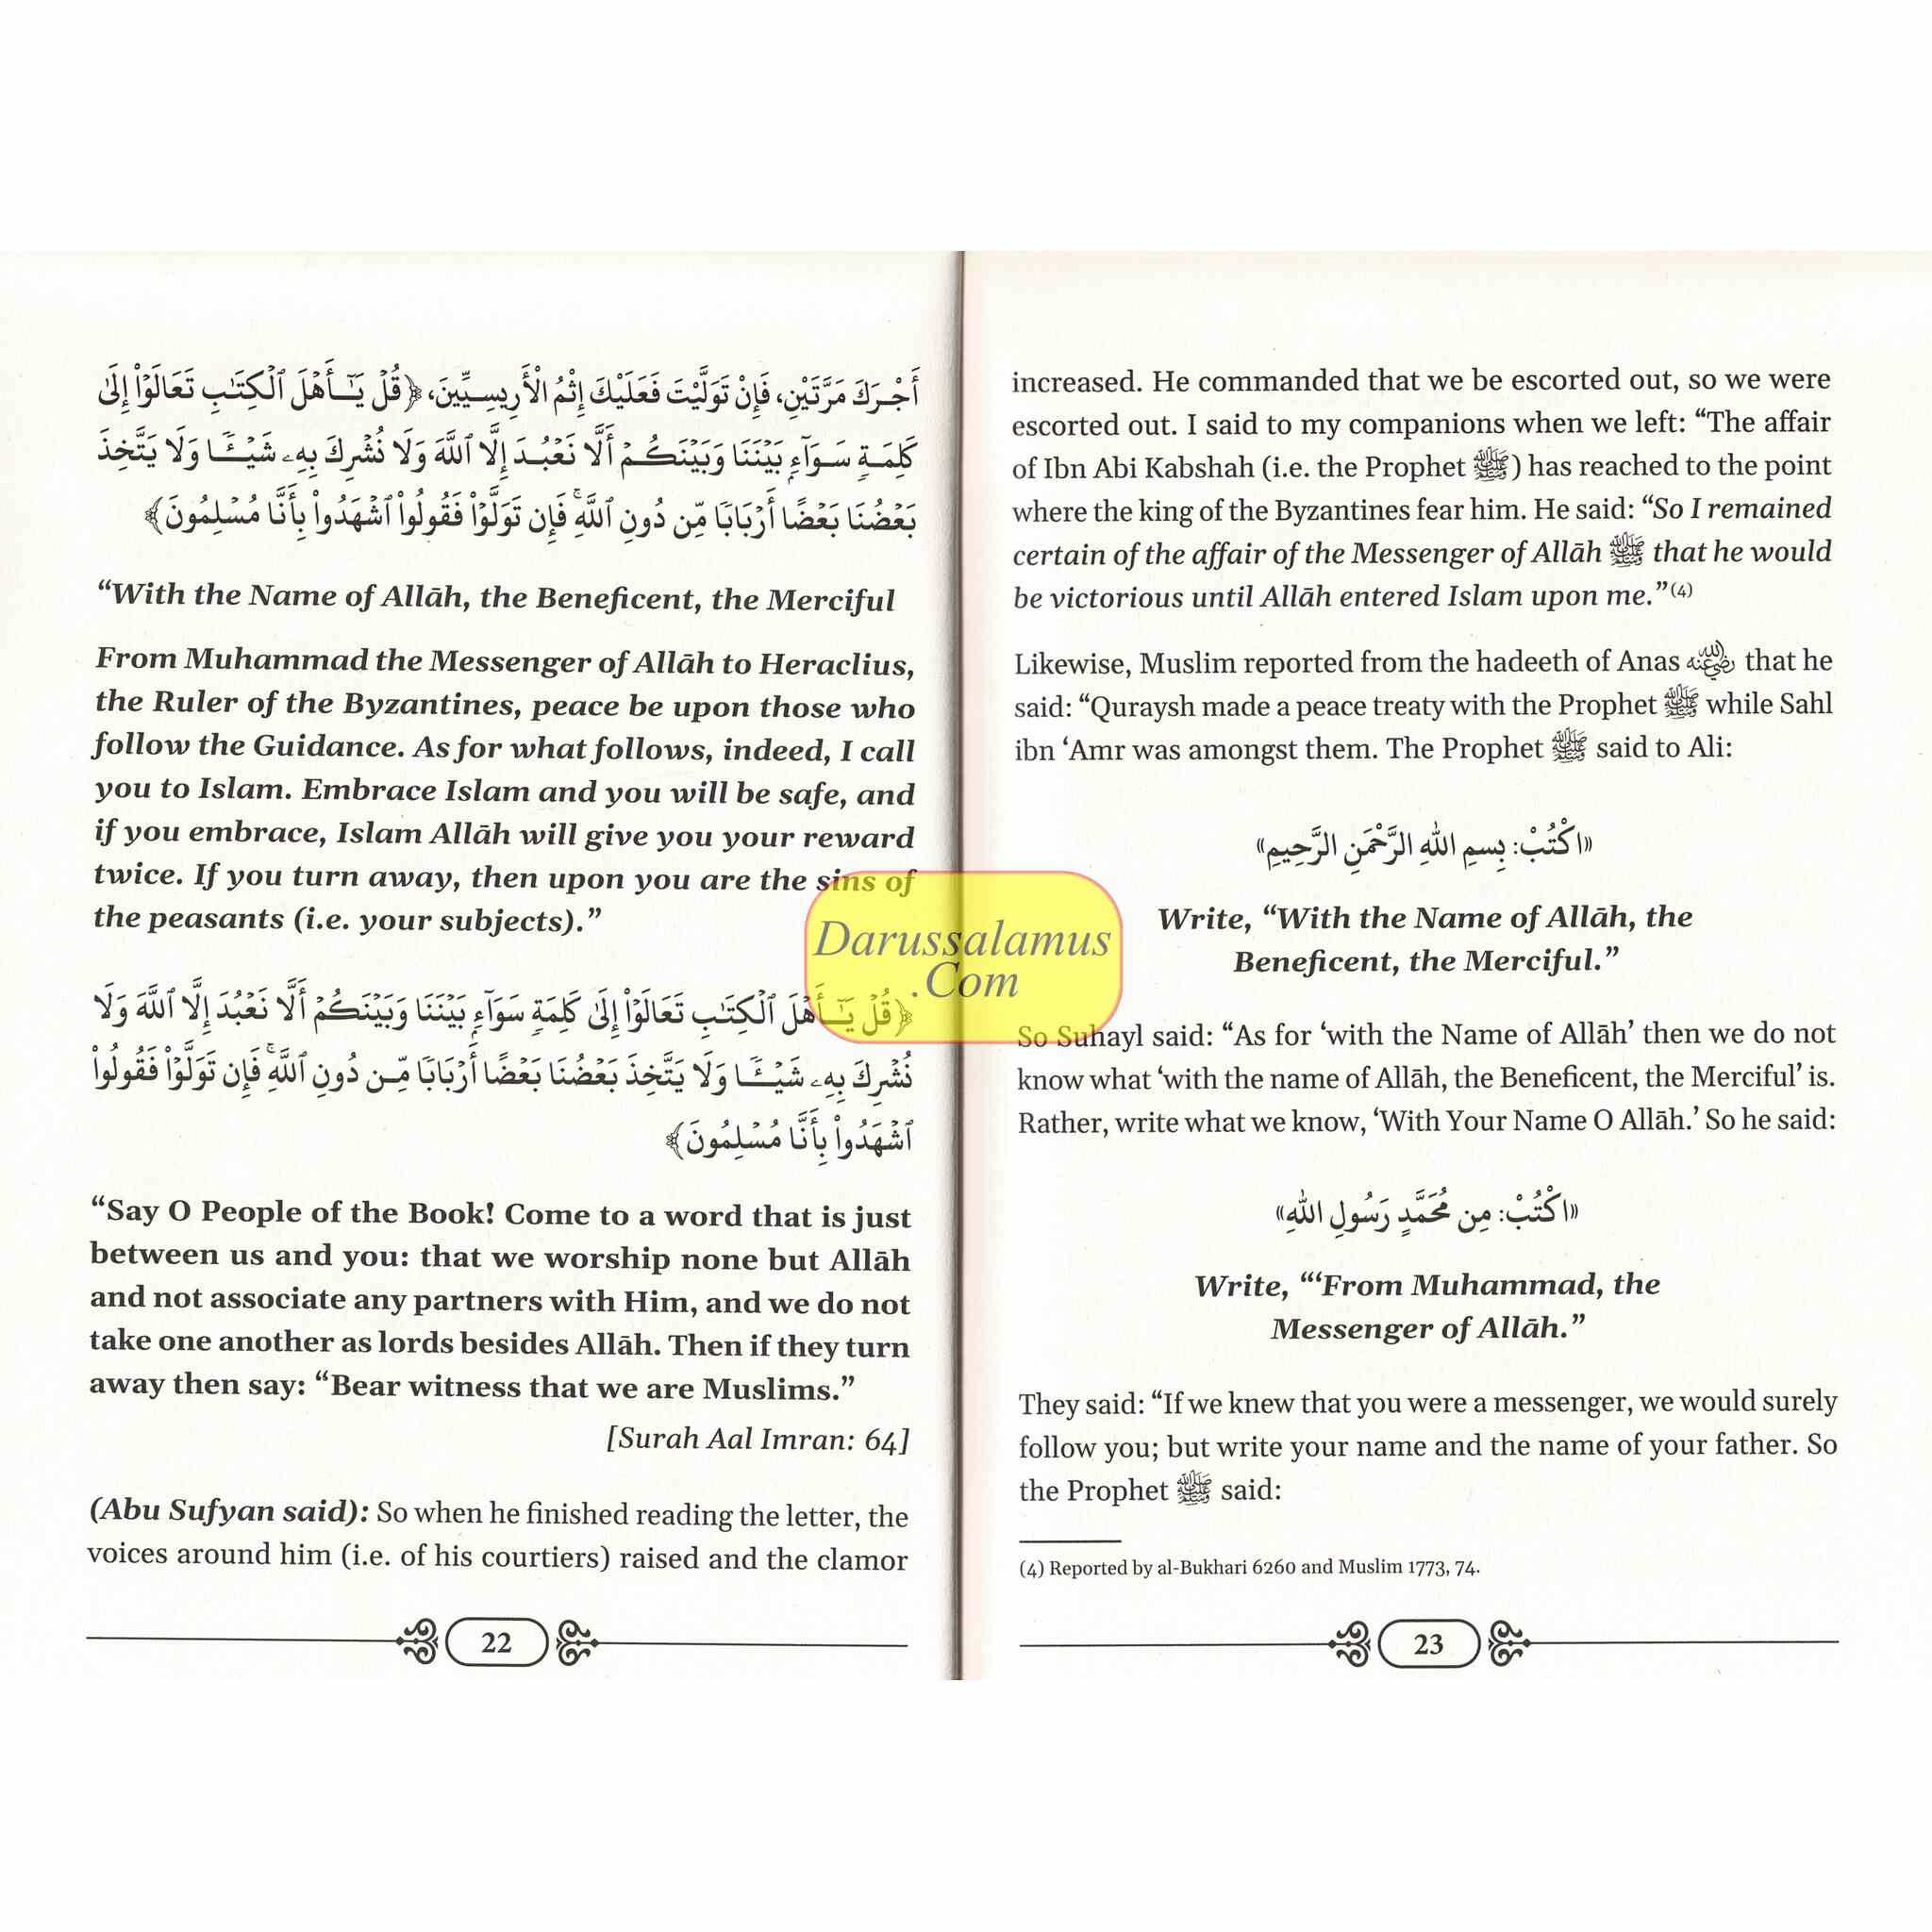 أَجْرَكَ مَرَّتَيْنِ، فَإِنْ تَوَلَّيْتَ فَعَلَيْكَ إِثْمُ الْأَرِيسِيِّينَ، ﴿قُلْ يَـٰٓأَهْلَ ٱلْكِتَـٰبِ تَعَالَوْا۟ إِلَىٰ
كَلِمَةٍ سَوَآءٍۭ بَيْنَنَا وَبَيْنَكُمْ أَلَّا نَعْبُدَ إِلَّا ٱللَّهَ وَلَا نُشْرِكَ بِهِۦ شَيْـًٔا وَلَا يَتَّخِذَ
بَعْضُنَا بَعْضًا أَرْبَابًا مِّن دُونِ ٱللَّهِ ۚ فَإِن تَوَلَّوْا۟ فَقُولُوا۟ ٱشْهَدُوا۟ بِأَنَّا مُسْلِمُونَ﴾
“With the Name of Allāh, the Beneficent, the Merciful
From Muhammad the Messenger of Allāh to Heraclius,
the Ruler of the Byzantines, peace be upon those who
follow the Guidance. As for what follows, indeed, I call
you to Islam. Embrace Islam and you will be safe, and
if you embrace, Islam Allāh will give you your reward
twice. If you turn away, then upon you are the sins of
the peasants (i.e. your subjects).”
﴿قُلْ يَـٰٓأَهْلَ ٱلْكِتَـٰبِ تَعَالَوْا۟ إِلَىٰ كَلِمَةٍ سَوَآءٍۭ بَيْنَنَا وَبَيْنَكُمْ أَلَّا نَعْبُدَ إِلَّا ٱللَّهَ وَلَا
نُشْرِكَ بِهِۦ شَيْـًٔا وَلَا يَتَّخِذَ بَعْضُنَا بَعْضًا أَرْبَابًا مِّن دُونِ ٱللَّهِ ۚ فَإِن تَوَلَّوْا۟ فَقُولُوا۟
ٱشْهَدُوا۟ بِأَنَّا مُسْلِمُونَ﴾
“Say O People of the Book! Come to a word that is just
between us and you: that we worship none but Allāh
and not associate any partners with Him, and we do not
take one another as lords besides Allāh. Then if they turn
away then say: “Bear witness that we are Muslims.”
[Surah Aal Imran: 64]
(Abu Sufyan said): So when he finished reading the letter, the
voices around him (i.e. of his courtiers) raised and the clamor
22
increased. He commanded that we be escorted out, so we were
escorted out. I said to my companions when we left: “The affair
of Ibn Abi Kabshah (i.e. the Prophet ﷺ) has reached to the point
where the king of the Byzantines fear him. He said: “So I remained
certain of the affair of the Messenger of Allāh ﷺ that he would
be victorious until Allāh entered Islam upon me.”(4)
Likewise, Muslim reported from the hadeeth of Anas رضي الله عنه that he
said: “Quraysh made a peace treaty with the Prophet ﷺ while Sahl
ibn ‘Amr was amongst them. The Prophet ﷺ said to Ali:
«اكْتُبْ: بِسمِ اللهِ الرَّحْمَنِ الرَّحِيمِ»
Write, “With the Name of Allāh, the
Beneficent, the Merciful.”
So Suhayl said: “As for ‘with the Name of Allāh’ then we do not
know what ‘with the name of Allāh, the Beneficent, the Merciful’ is.
Rather, write what we know, ‘With Your Name O Allāh.’ So he said:
«اكْتُبْ: مِن مُحَمَّدٍ رَسُولِ اللهِ»
Write, “‘From Muhammad, the
Messenger of Allāh.”
They said: “If we knew that you were a messenger, we would surely
follow you; but write your name and the name of your father. So
the Prophet ﷺ said:
(4) Reported by al-Bukhari 6260 and Muslim 1773, 74.
23
Darussalamus
.Com